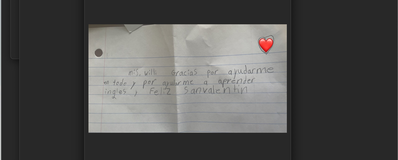 MS. Will Gracias por ayudarme
en todo y por ayudarme a aprender
ingles y Feliz Sanvalentin